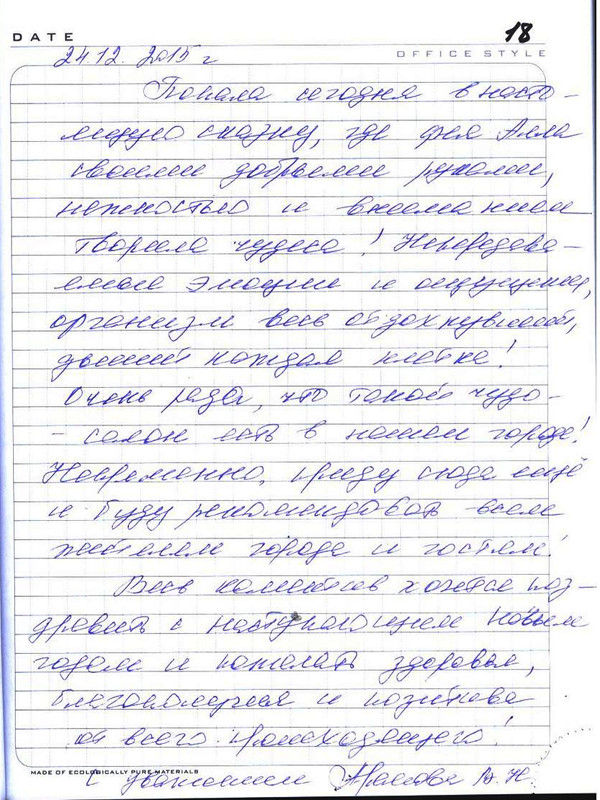 DATE
18
24.12.2015 г
OFFICE STYLE
Попала сегодня в насто-
ящую сказку, где фея Алла
своими добрыми руками,
нежностью и вниманием
творила чудеса! Непередава-
емые эмоции и ощущения,
организм весь отдохнувший,
дышит каждая клетка!
Очень рада, что такой чудо-
- салон есть в нашем городе!
Непременно, приду сюда ещё
и буду рекомендовать всем
жителям города и гостям!
Весь коллектив хочется поз-
дравить с наступающим Новым
годом и пожелать здоровья,
благополучия и позитива
от всего происходящего!
MADE OF ECOLOGICALLY PURE MATERIALS
С уважением В. Н.